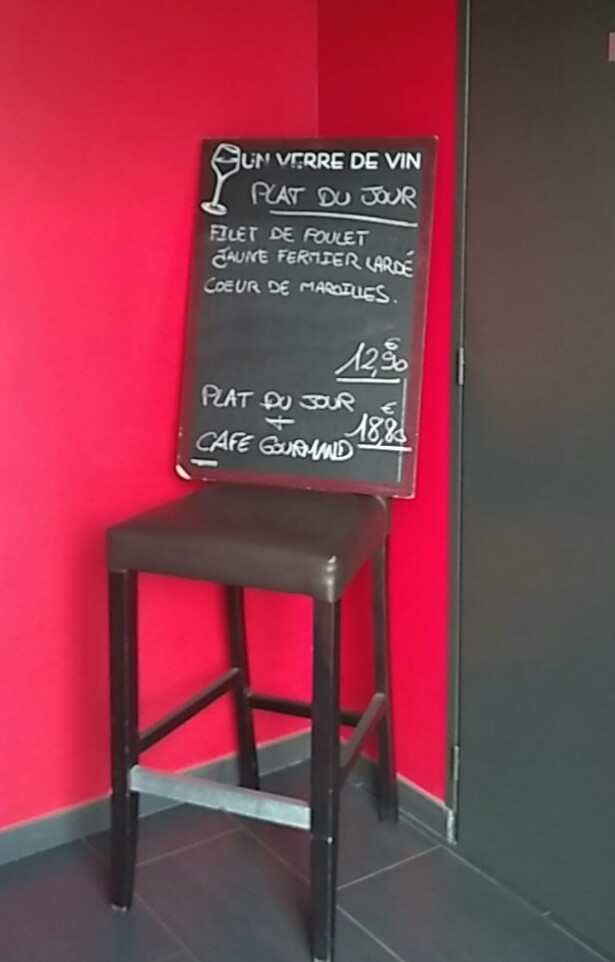 UN VERRE DE VIN
PLAT DU JOUR
FILET DE POULET
JAUNE FERMIER LARDÉ
COEUR DE MAROILLES.
12,90 €
PLAT DU JOUR
+
18,80 €
CAFE GOURMAND